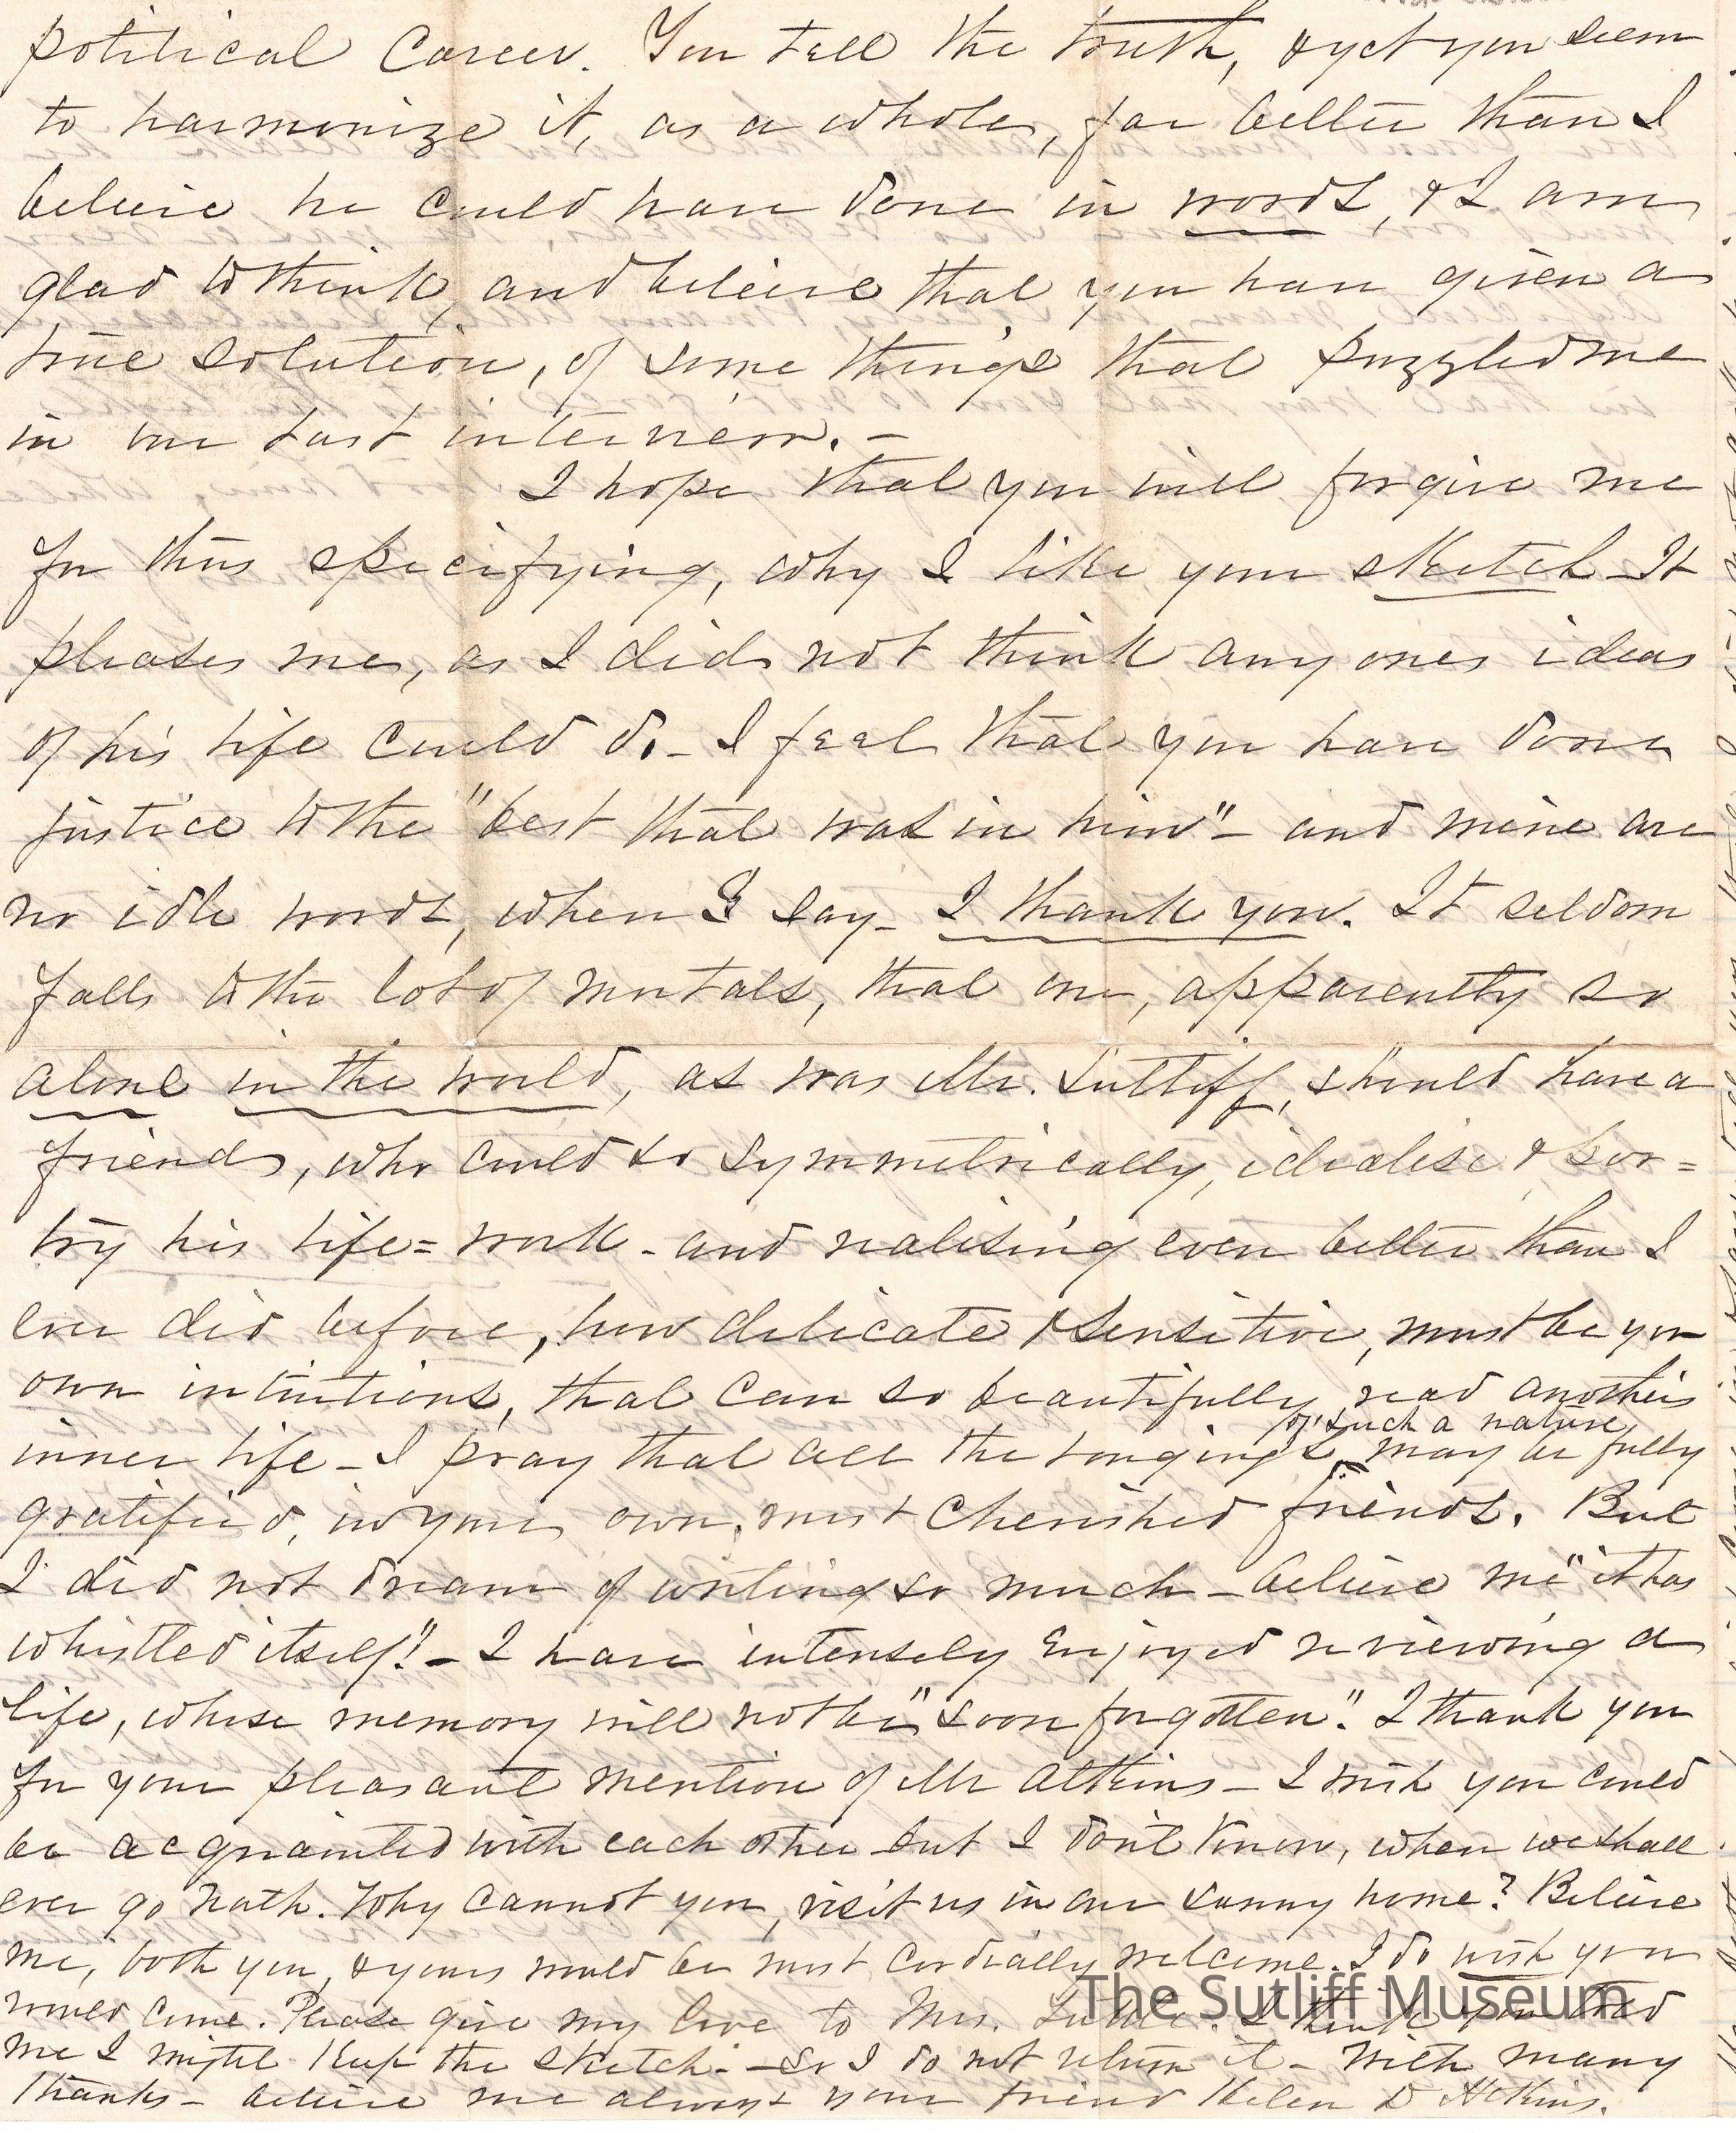 political career. You tell the truth, & yet you seem
to harmonize it, as a whole, far better than I
believe he could have done in words, & I am
glad to think, and believe that you have given a
true solution, of some things that puzzled me
in our last interview. –
I hope that you will forgive me
for thus specifying, why I like your sketch – It
pleases me, as I did not think any ones ideas
of his life could do – I feel that you have done
justice to the "best that was in him" – and mine are
no idle words, when I say – I thank you. It seldom
falls to the lot of mortals, that one, apparently so
alone in the world, as was Mr. Sutliff, should have a
friend, who could so symmetrically, idealise & por=
tray his life=work – and realising even better than I
ever did before, how delicate & sensitive, must be your
own intuitions, that can so beautifully read another's
of such a nature
inner life – I pray that all the longings may be fully
gratified, in your own, most cherished friends. But
I did not dream of writing so much – believe me "it has
whistled itself"! – I have intensely enjoyed reviewing a
life, whose memory will not be "soon forgotten". I thank you
for your pleasant mention of Mr Atkins – I wish you could
be acquainted with each other but I don't know, when we shall
ever go North. Why cannot you, visit us in our sunny home? Believe
me, both you, & yours would be most cordially welcome. I do wish you
would come. Please give my love to Mrs. I think you told
me I might keep the sketch – So I do not return it – With many
thanks – believe me always your friend Helen D Atkins.
The Sutliff Museum